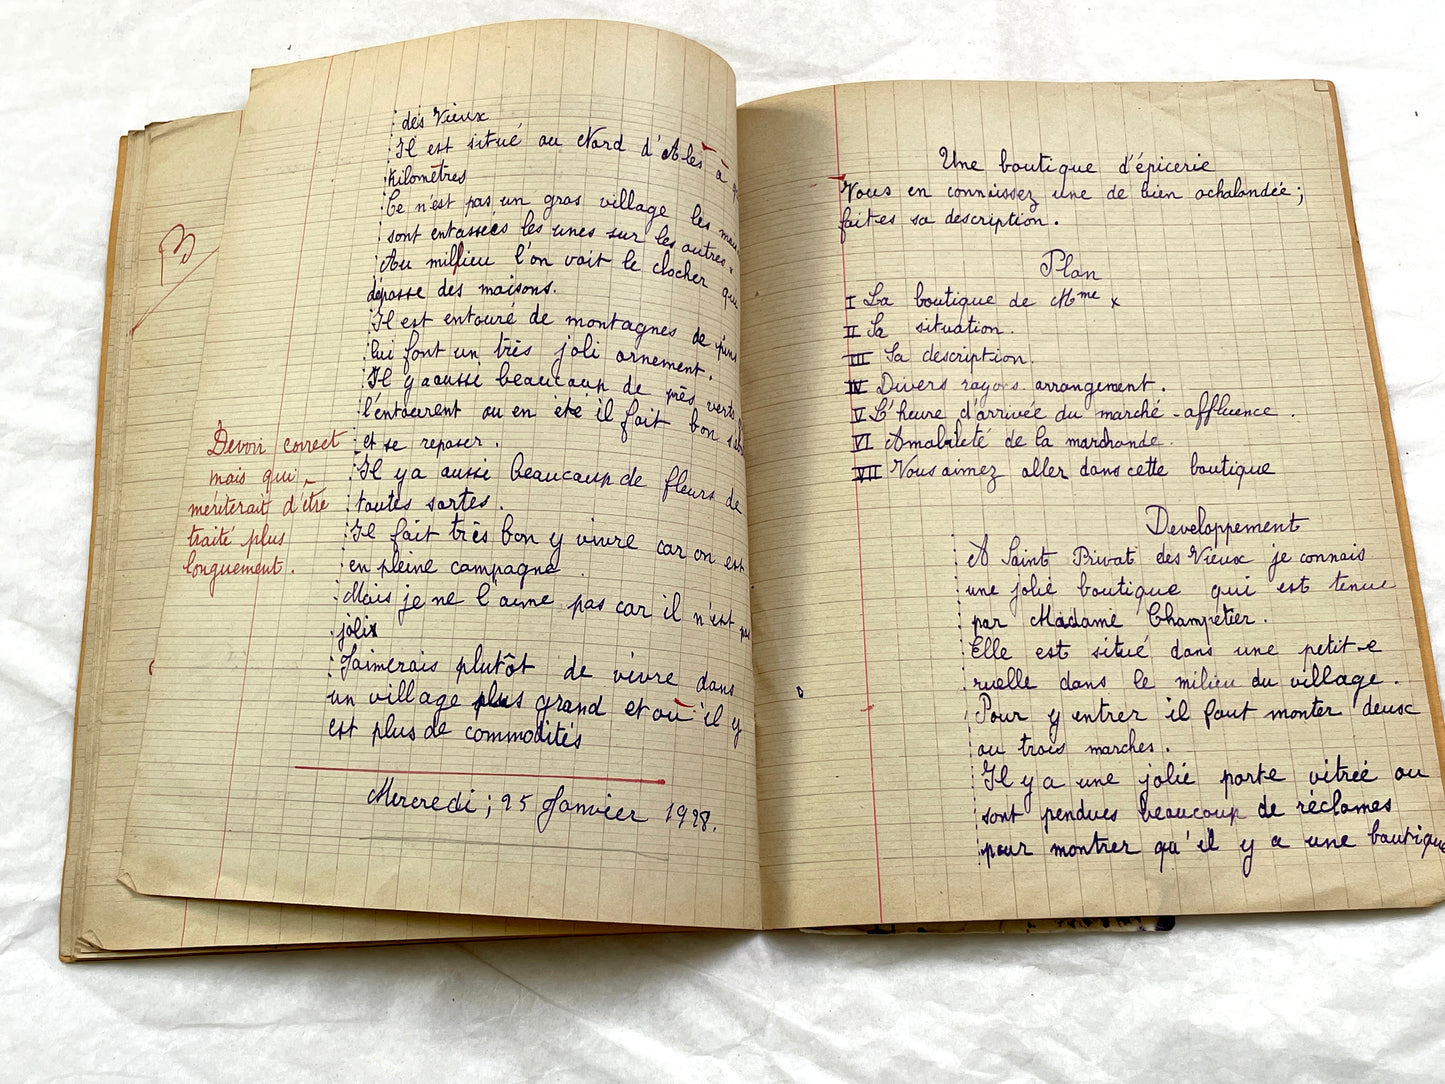 des Vieux
Il est situé au Nord d'Alès à
kilomètres
Ce n'est pas un gros village les
sont entassées les unes sur les autres.
Au millieu l'on voit le clocher que
dépasse des maisons.
Il est entouré de montagnes de pins
lui font un très joli ornement.
Il y a aussi beaucoup de près verts
l'entourent ou en été il fait bon
et se reposer.
Il y a aussi beaucoup de fleurs de
toutes sortes.
Il fait très bon y vivre car on est
en pleine campagne.
Mais je ne l'aime pas car il n'est pas
joli
J'aimerais plutôt de vivre dans
un village plus grand et où il y
est plus de commodités
Mercredi; 25 Janvier 1928.
Devoir correct
mais qui
mériterait d'être
traité plus
longuement.
Une boutique d'épicerie
Vous en connaissez une de bien achalandée;
faites sa description.
Plan
I La boutique de Mme x
II Sa situation.
III Sa description.
IV Divers rayons. arrangement.
V L'heure d'arrivée du marché - affluence.
VI Amabileté de la marchande.
VII Vous aimez aller dans cette boutique
Developpement
A Saint Privat des Vieux je connais
une jolie boutique qui est tenue
par Madame Champetier.
Elle est situé dans une petit-e
ruelle dans le milieu du village.
Pour y entrer il faut monter deux
ou trois marches.
Il y a une jolie porte vitrée ou
sont pendues beaucoup de réclames
pour montrer qu'il y a une boutique